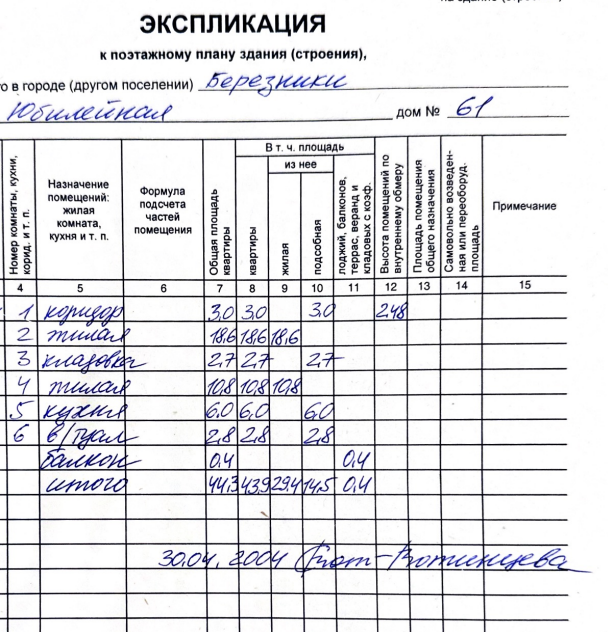 ЭКСПЛИКАЦИЯ
к поэтажному плану здания (строения),
в городе (другом поселении) Березники
Юбилейная дом № 61
Номер комнаты, кухни, корид. и т. п.
Назначение помещений: жилая комната, кухня и т. п.
Формула подсчета частей помещения
Общая площадь квартиры
В т. ч. площадь
квартиры
из нее
жилая
подсобная
лоджий, балконов, террас, веранд и кладовых с коэф.
Высота помещений по внутреннему обмеру
Площадь помещения общего назначения
Самовольно возведенная или переоборуд. площадь
Примечание
4 5 6 7 8 9 10 11 12 13 14 15
1 коридор 3,0 3,0 3,0 2,48
2 жилая 18,6 18,6 18,6
3 кладовка 2,7 2,7 2,7
4 жилая 10,8 10,8 10,8
5 кухня 6,0 6,0 6,0
6 в/туал 2,8 2,8 2,8
балкон 0,4 0,4
итого 44,3 43,9 29,4 14,5 0,4
30.04.2004